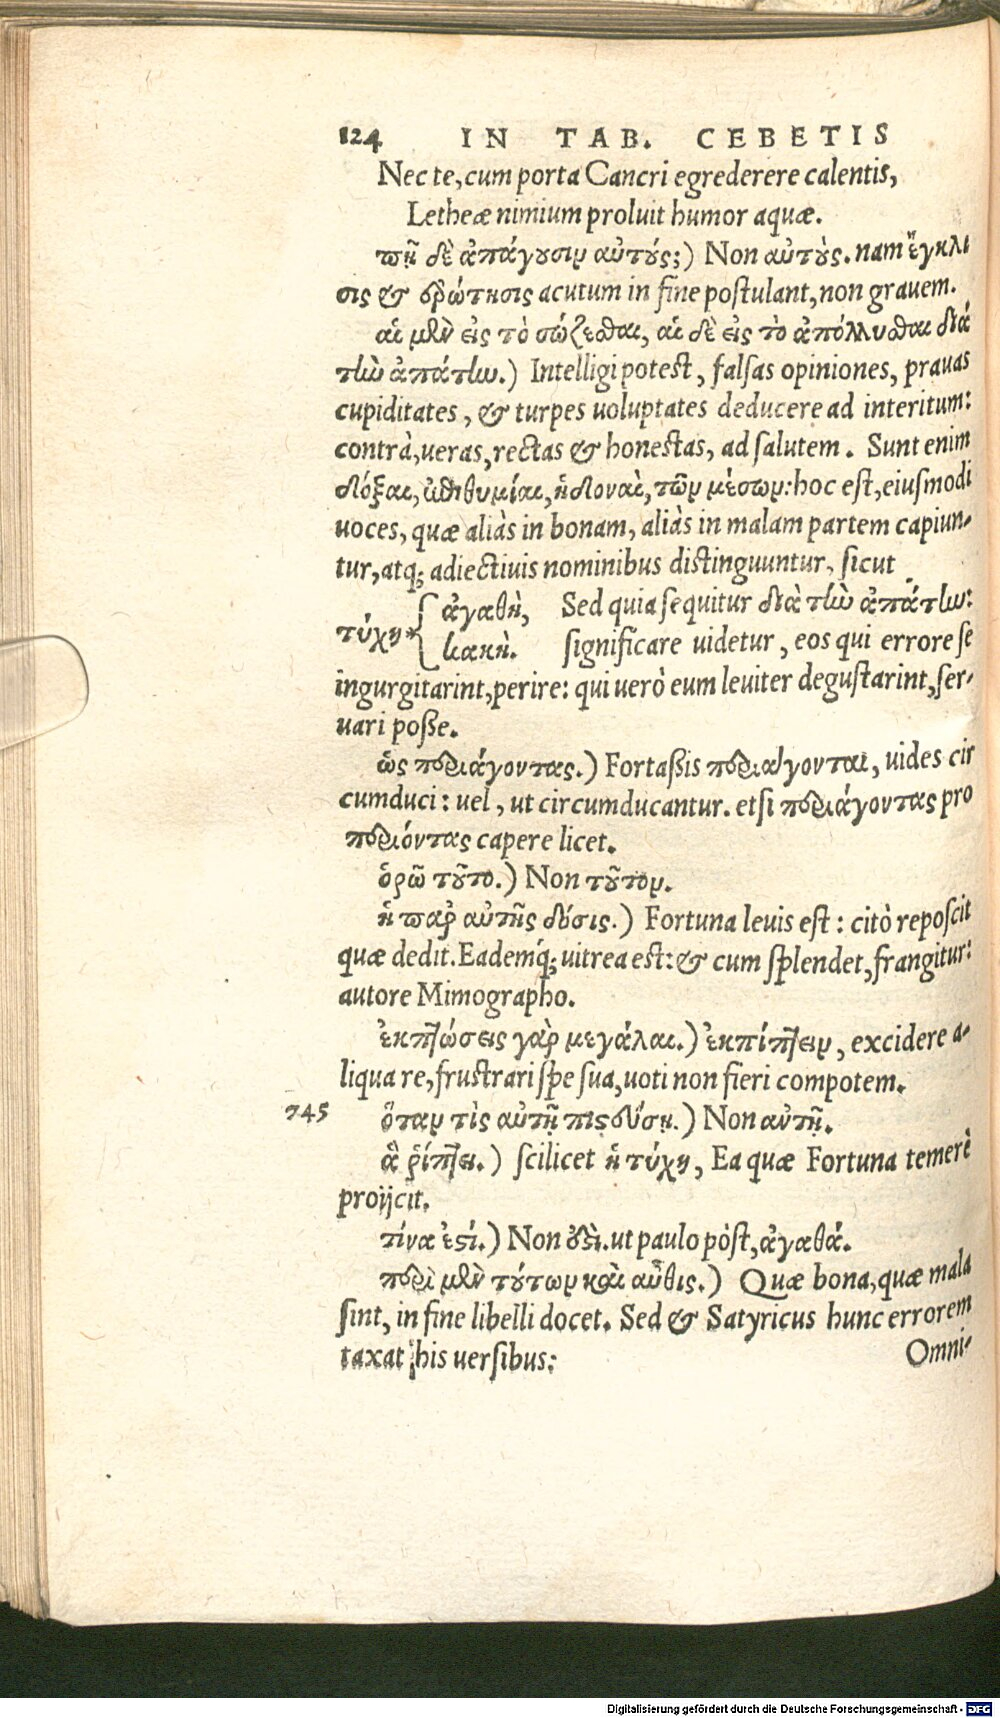 124 IN TAB. CEBETIS
Nec te, cum porta Cancri egrederere calentis,
Letheæ nimium proluit humor aquæ.
πῆ δὲ ἀπάγουσιν αὐτούς;) Non αὐτοὺς. nam ἔγκλι
σις & ἐρώτησις acutum in fine postulant, non grauem.
αἱ μὲν εἰς τὸ σώζεσθαι, αἱ δὲ εἰς τὸ ἀπόλλυσθαι διὰ
τὴν ἀπάτην.) Intelligi potest, falsas opiniones, prauas
cupiditates, & turpes uoluptates deducere ad interitum:
contrà, ueras, rectas & honestas, ad salutem. Sunt enim
δόξαι, ἐπιθυμίαι, ἡδοναὶ, τῶν μέσων: hoc est, eiusmodi
uoces, quæ aliàs in bonam, aliàs in malam partem capiun-
tur, atq; adiectiuis nominibus distinguuntur, sicut
τύχη { ἀγαθὴ, Sed quia sequitur διὰ τὴν ἀπάτην:
κακὴ. significare uidetur, eos qui errore se
ingurgitarint, perire: qui uerò eum leuiter degustarint, ser-
uari posse.
ὡς περιάγοντας.) Fortassis περιάγονται, uides cir
cumduci: uel, ut circumducantur. etsi περιάγοντας pro
περιόντας capere licet.
ὁρῶ τοῦτο.) Non τοῦτον.
ἡ παρ' αὐτῆς δόσις.) Fortuna leuis est: citò reposcit
quæ dedit. Eademq́; uitrea est: & cum splendet, frangitur:
autore Mimographo.
ἐκπτώσεις γὰρ μεγάλαι.) ἐκπίπτειν, excidere a-
liqua re, frustrari spe sua, uoti non fieri compotem.
745 ὅταν τὶς αὐτῇ πιστεύσῃ.) Non αὐτῇ.
ἃ ῥίπτει.) scilicet ἡ τύχη, Ea quæ Fortuna temerè
proijcit.
τίνα ἐστί.) Non ἐστὶ. ut paulo pòst, ἀγαθά.
περὶ μὲν τούτων καὶ αὖθις.) Quæ bona, quæ mala
sint, in fine libelli docet. Sed & Satyricus hunc errorem
taxat his uersibus:
Omni-
Digitalisierung gefördert durch die Deutsche Forschungsgemeinschaft - DFG